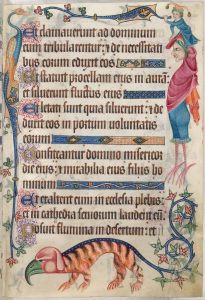 Et clamauerunt ad dominum
cum tribularentur: ⁊ de necessitati
bus eorum eduxit eos
Et statuit procellam eius in aurā:
et siluerunt fluctus eius
Et letati sunt quia siluerunt: ⁊ de
duxit eos in portum uoluntatis
eorum
Confiteantur domino misericor
die eius: ⁊ mirabilia eius filiis ho
minum
Et exaltent eum in ecclesia plebis:
et in cathedra seniorum laudent eū
Posuit flumina in desertum: et